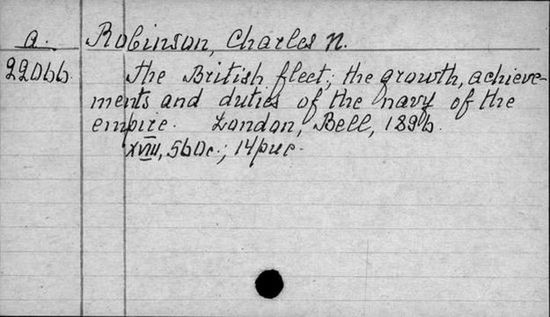 a. Robinson, Charles N.
22066. The British fleet; the growth, achieve-
ments and duties of the navy of the
empire. London, Bell, 1896.
XVIII, 560с.; 14рис.